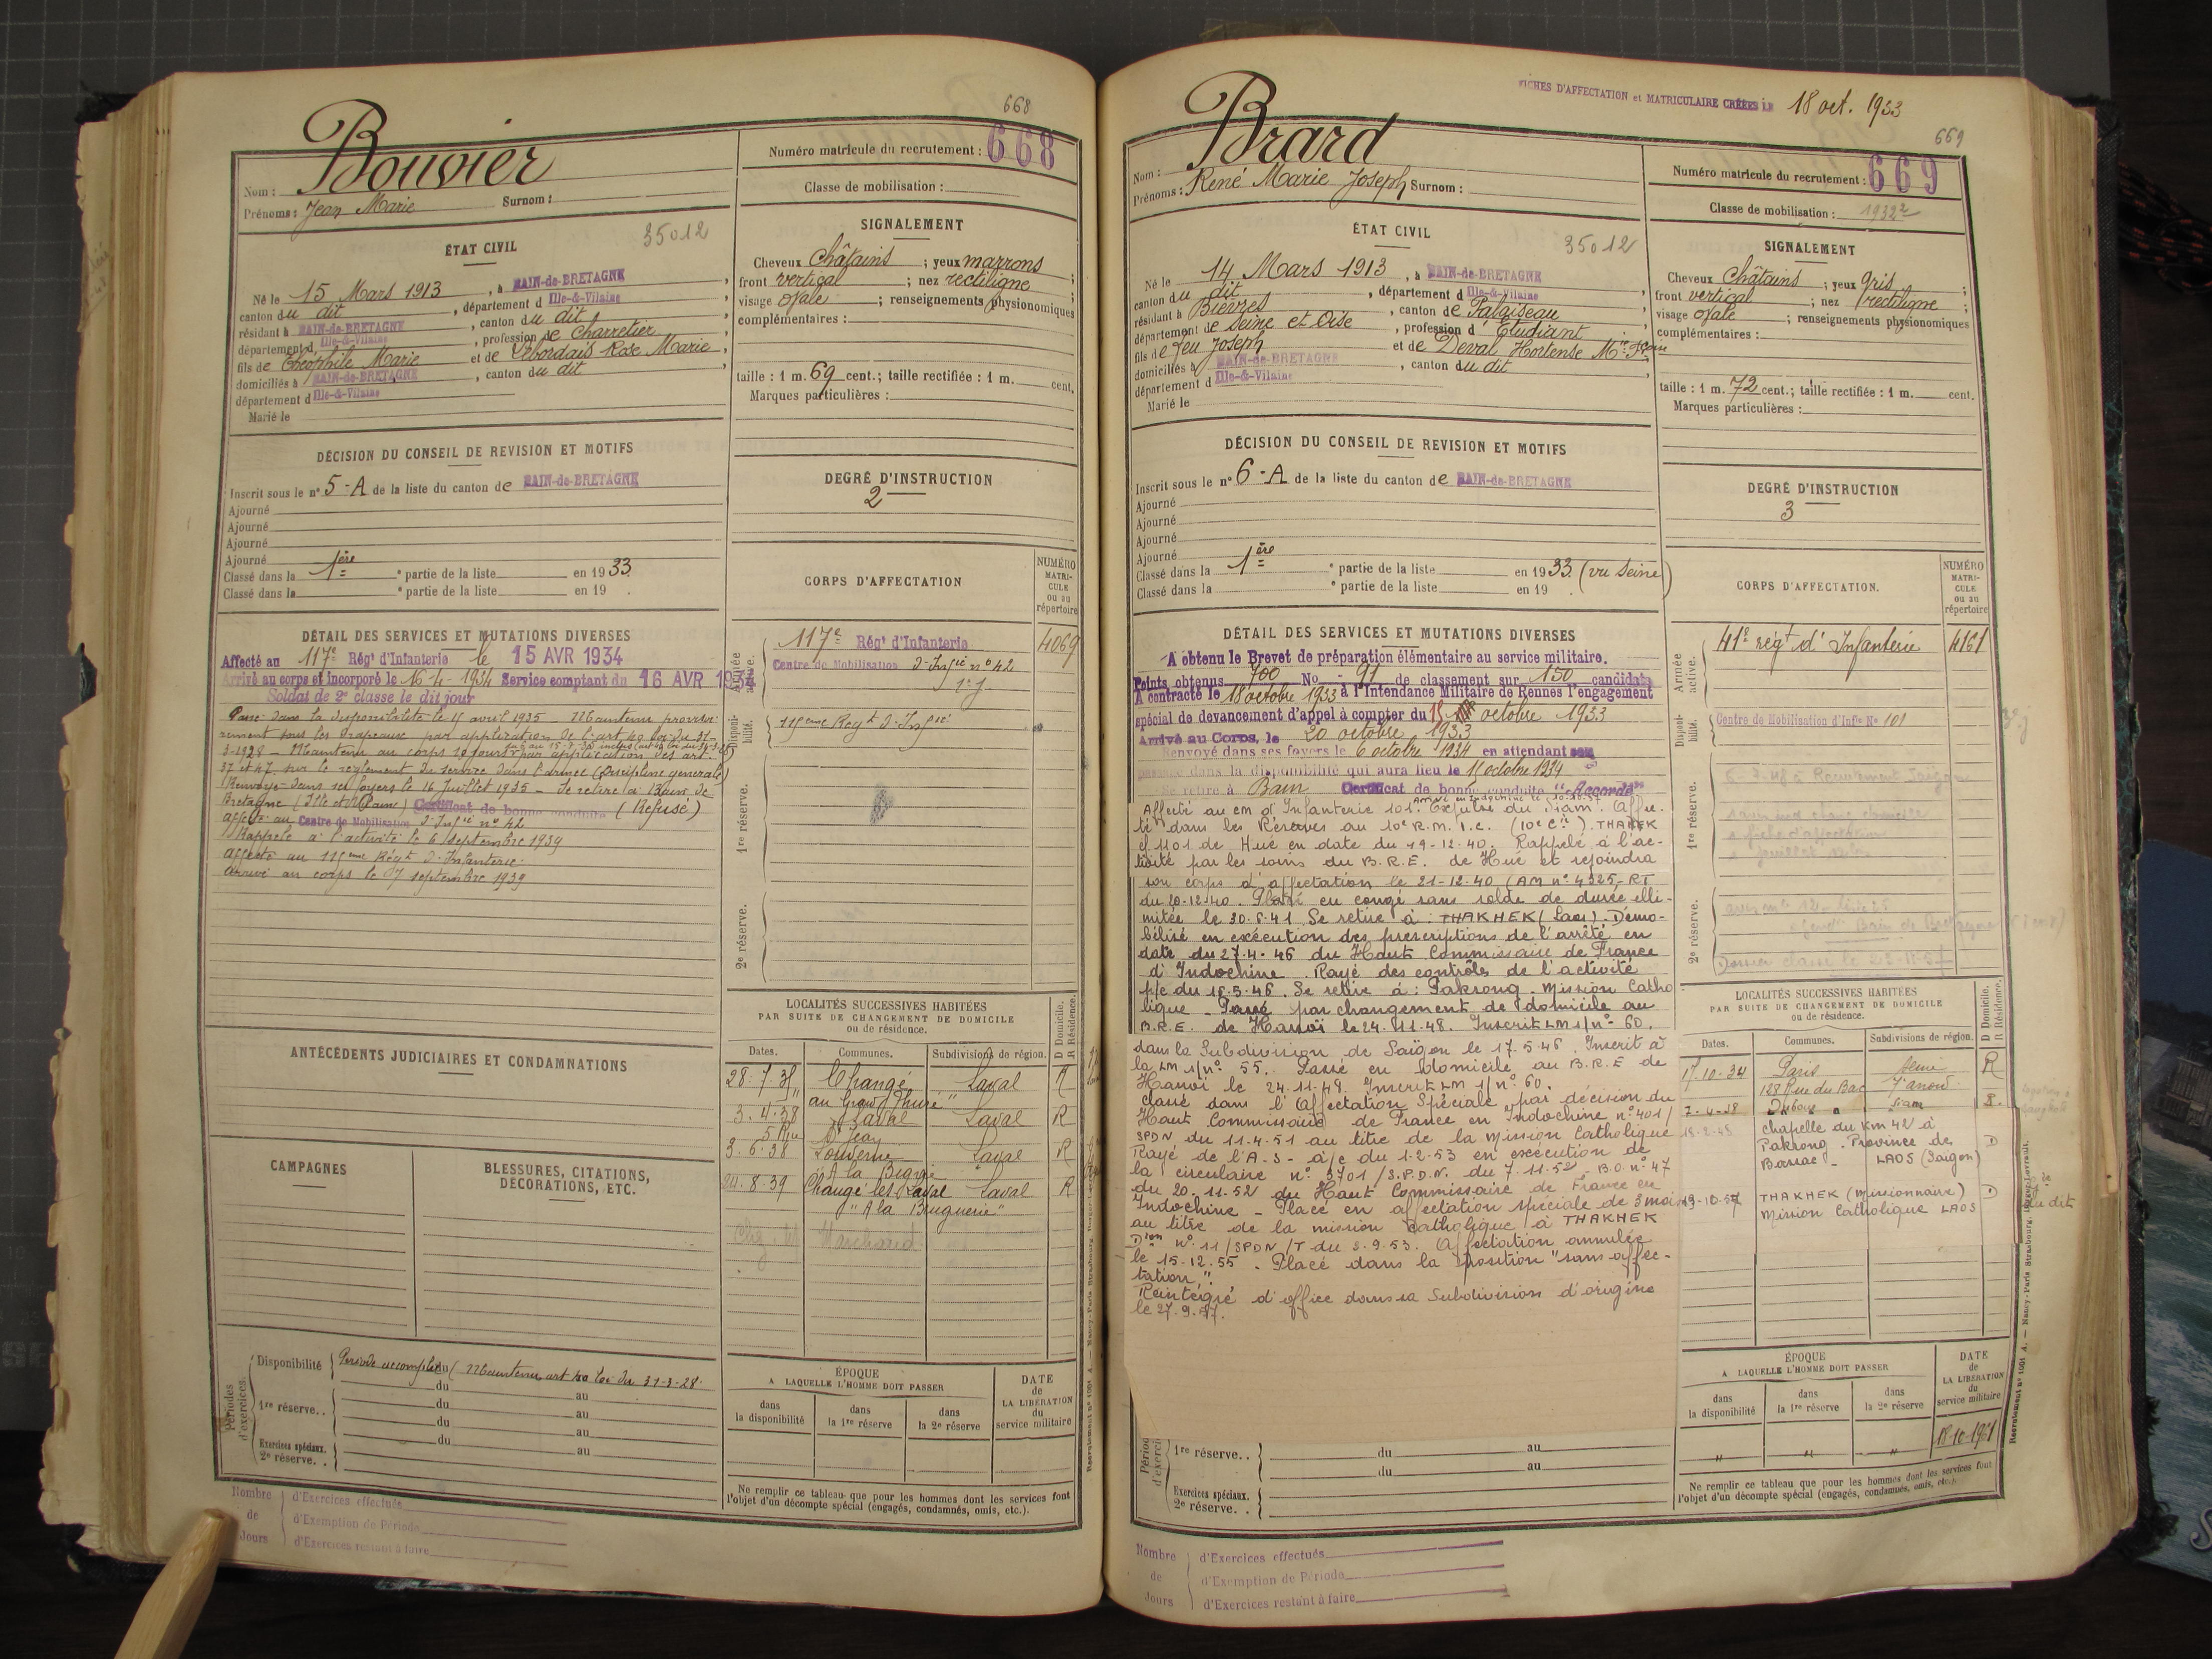 668
Bouvier
Nom :
Prénoms : Jean Marie Surnom :
Numéro matricule du recrutement : 668
Classe de mobilisation :
ÉTAT CIVIL
35012
Né le 15 Mars 1913, à BAIN-de-BRETAGNE
canton du dit, département d Ille-&-Vilaine
résidant à BAIN-de-BRETAGNE, canton du dit
département d Ille-&-Vilaine, profession de Charretier
fils de Théophile Marie et de Lebordais Rose Marie
domiciliés à BAIN-de-BRETAGNE, canton du dit
département d Ille-&-Vilaine
Marié le
SIGNALEMENT
Cheveux Châtains ; yeux marrons ;
front vertical ; nez rectiligne ;
visage ovale ; renseignements physionomiques
complémentaires :
taille : 1 m. 69 cent.; taille rectifiée : 1 m. cent.
Marques particulières :
DÉCISION DU CONSEIL DE REVISION ET MOTIFS
Inscrit sous le n° 5-A de la liste du canton de BAIN-de-BRETAGNE
Ajourné
Ajourné
Ajourné
Ajourné
Classé dans la 1ère partie de la liste en 1933
Classé dans la partie de la liste en 19 .
DEGRÉ D'INSTRUCTION
2
CORPS D'AFFECTATION
NUMÉRO
MATRI-
CULE
ou au
répertoire
DÉTAIL DES SERVICES ET MUTATIONS DIVERSES
Affecté au 117e Régt d'Infanterie le 15 AVR 1934
Arrivé au corps et incorporé le 16-4-1934 Service comptant du 16 AVR 1934
Soldat de 2e classe le dit jour
Passé dans la disponibilité le 15 avril 1935 - Maintenu provisoi-
rement sous les drapeaux par application de l'art 40 loi du 31-
3-1928 - Maintenu au corps 10 jours par application des art.
37 et 47 sur le règlement du service dans l'armée (Discipline générale)
Renvoyé dans ses foyers le 16 Juillet 1935 - Se retire à Bain de
Bretagne (Ille et Vilaine) Certificat de bonne conduite (Refusé)
affecté au Centre de Mobilisation d'Infie n° 42
Rappelé à l'activité le 6 septembre 1939
affecté au 115ème Régt d'Infanterie.
Arrivé au corps le 7 septembre 1939
Armée active.
117e Régt d'Infanterie 4069
Centre de Mobilisation d'Infie n° 42
Disponibilité.
115ème Regt d'Infie
1re réserve.
2e réserve.
LOCALITÉS SUCCESSIVES HABITÉES
PAR SUITE DE CHANGEMENT DE DOMICILE
ou de résidence.
D Domicile.
R Résidence.
Dates. Communes. Subdivisions de région.
28.7.35 Changé Laval R
3.4.38 Laval Laval R
3.6.38 Louverné Laval R
24.8.39 Changé les Laval Laval R
"A la Bruguerie"
ANTÉCÉDENTS JUDICIAIRES ET CONDAMNATIONS
CAMPAGNES
BLESSURES, CITATIONS,
DÉCORATIONS, ETC.
Périodes d'exercices.
Disponibilité Période accomplie du (Maintenu art 40 loi du 31-3-28.
du au
1re réserve.. du au
du au
Exercices spéciaux. du au
2e réserve. .
ÉPOQUE
A LAQUELLE L'HOMME DOIT PASSER
dans la disponibilité
dans la 1re réserve
dans la 2e réserve
DATE
de
LA LIBÉRATION
du
service militaire
Ne remplir ce tableau que pour les hommes dont les services font
l'objet d'un décompte spécial (engagés, condamnés, omis, etc.).
Nombre d'Exercices effectués
de d'Exemption de Période
Jours d'Exercices restant à faire
FICHES D'AFFECTATION et MATRICULAIRE CRÉÉES LE 18 oct. 1933
669
Brard
Nom :
Prénoms : René Marie Joseph Surnom :
Numéro matricule du recrutement : 669
Classe de mobilisation : 1932²
ÉTAT CIVIL
35012
Né le 14 Mars 1913, à BAIN-de-BRETAGNE
canton du dit, département d Ille-&-Vilaine
résidant à Bièvres, canton de Palaiseau
département de Seine et Oise, profession d'Etudiant
fils de feu Joseph et de Deval Hortense Mie Fçoise
domiciliés à BAIN-de-BRETAGNE, canton du dit
département d Ille-&-Vilaine
Marié le
SIGNALEMENT
Cheveux Châtains ; yeux gris ;
front vertical ; nez rectiligne ;
visage ovale ; renseignements physionomiques
complémentaires :
taille : 1 m. 72 cent.; taille rectifiée : 1 m. cent.
Marques particulières :
DÉCISION DU CONSEIL DE REVISION ET MOTIFS
Inscrit sous le n° 6-A de la liste du canton de BAIN-de-BRETAGNE
Ajourné
Ajourné
Ajourné
Ajourné
Classé dans la 1ère partie de la liste en 1933 (vu Seine)
Classé dans la partie de la liste en 19 .
DEGRÉ D'INSTRUCTION
3
CORPS D'AFFECTATION.
NUMÉRO
MATRI-
CULE
ou au
répertoire
DÉTAIL DES SERVICES ET MUTATIONS DIVERSES
A obtenu le Brevet de préparation élémentaire au service militaire.
Points obtenus 700 No - 91 de classement sur 150 candidats
A contracté le 18 octobre 1933 à l'Intendance Militaire de Rennes l'engagement
spécial de devancement d'appel à compter du 15 octobre 1933
Arrivé au Corps, le 20 octobre 1933
Renvoyé dans ses foyers le 6 octobre 1934 en attendant son
passage dans la disponibilité qui aura lieu le 15 octobre 1934
Se retire à Bain Certificat de bonne conduite "Accordé"
Arrivé en Indochine le 10.10.37
Affecté au CM d'Infanterie 101. Expulsé du Siam. Affec-
té dans les Réserves au 10e R.M.I.C. (10e Cie) THAKEK
cf 1101 de Hué en date du 19-12-40. Rappelé à l'ac-
tivité par les soins du B.R.E. de Hué et rejoindra
son corps d'affectation le 21-12-40 (AM n° 4325-RT
du 20-12-40. Placé en congé sans solde de durée illi-
mitée le 30.6.41 Se retire à : THAKHEK (Laos). Démo-
bilisé en exécution des prescriptions de l'arrêté en
date du 27-4-46 du Haut Commissaire de France
d'Indochine. Rayé des contrôles de l'activité
p/c du 16.5.46. Se retire à : Pakrong. Mission Catho
lique - Passé par changement de domicile au
B.R.E. de Hanoï le 24.11.48. Inscrit LM 1/n° 60.
dans la Subdivision de Saïgon le 17.5.46. Inscrit à
la LM 1/n° 55. Passé en domicile au B.R.E de
Hanoï le 24.11.48. Inscrit LM 1/n° 60.
Classé dans l'Affectation Spéciale par décision du
Haut Commissaire de France en Indochine n° 401/
SPDN du 11.4.51 au titre de la Mission Catholique
Rayé de l'A-S- à/c du 1.2.53 en exécution de
la circulaire n° 3701/S.P.D.N. du 7.11.52 - B.O. n° 47
du 20.11.52 du Haut Commissaire de France en
Indochine - Placé en affectation spéciale de 3 mois
au titre de la mission Catholique à THAKHEK
Dion N° 11/SPDN/T du 2.9.53. Affectation annulée
le 15-12.55 - Placé dans la position "sans affec-
tation".
Réintégré d'office dans sa Subdivision d'origine
le 27.9.57.
Armée active.
41e régt d'Infanterie 4161
Disponibilité.
Centre de Mobilisation d'Infie N° 101
1re réserve.
2e réserve.
LOCALITÉS SUCCESSIVES HABITÉES
PAR SUITE DE CHANGEMENT DE DOMICILE
ou de résidence.
D Domicile.
R Résidence.
Dates. Communes. Subdivisions de région.
17-10-34 Paris Seine R
128 Rue du Bac
2-4-38 Siam
18-2-48 chapelle du Km 42 à
Pakrong. Province de D
Bassac - LAOS (Saïgon)
19-10-57 THAKHEK (Missionnaire) D
Mission Catholique LAOS
1re réserve.. du au
du au
Exercices spéciaux.
2e réserve. .
ÉPOQUE
A LAQUELLE L'HOMME DOIT PASSER
dans la disponibilité
dans la 1re réserve
dans la 2e réserve
DATE
de
LA LIBÉRATION
du
service militaire
" " " 18-10-1961
Ne remplir ce tableau que pour les hommes dont les services font
l'objet d'un décompte spécial (engagés, condamnés, omis, etc.).
Nombre d'Exercices effectués
de d'Exemption de Période
Jours d'Exercices restant à faire